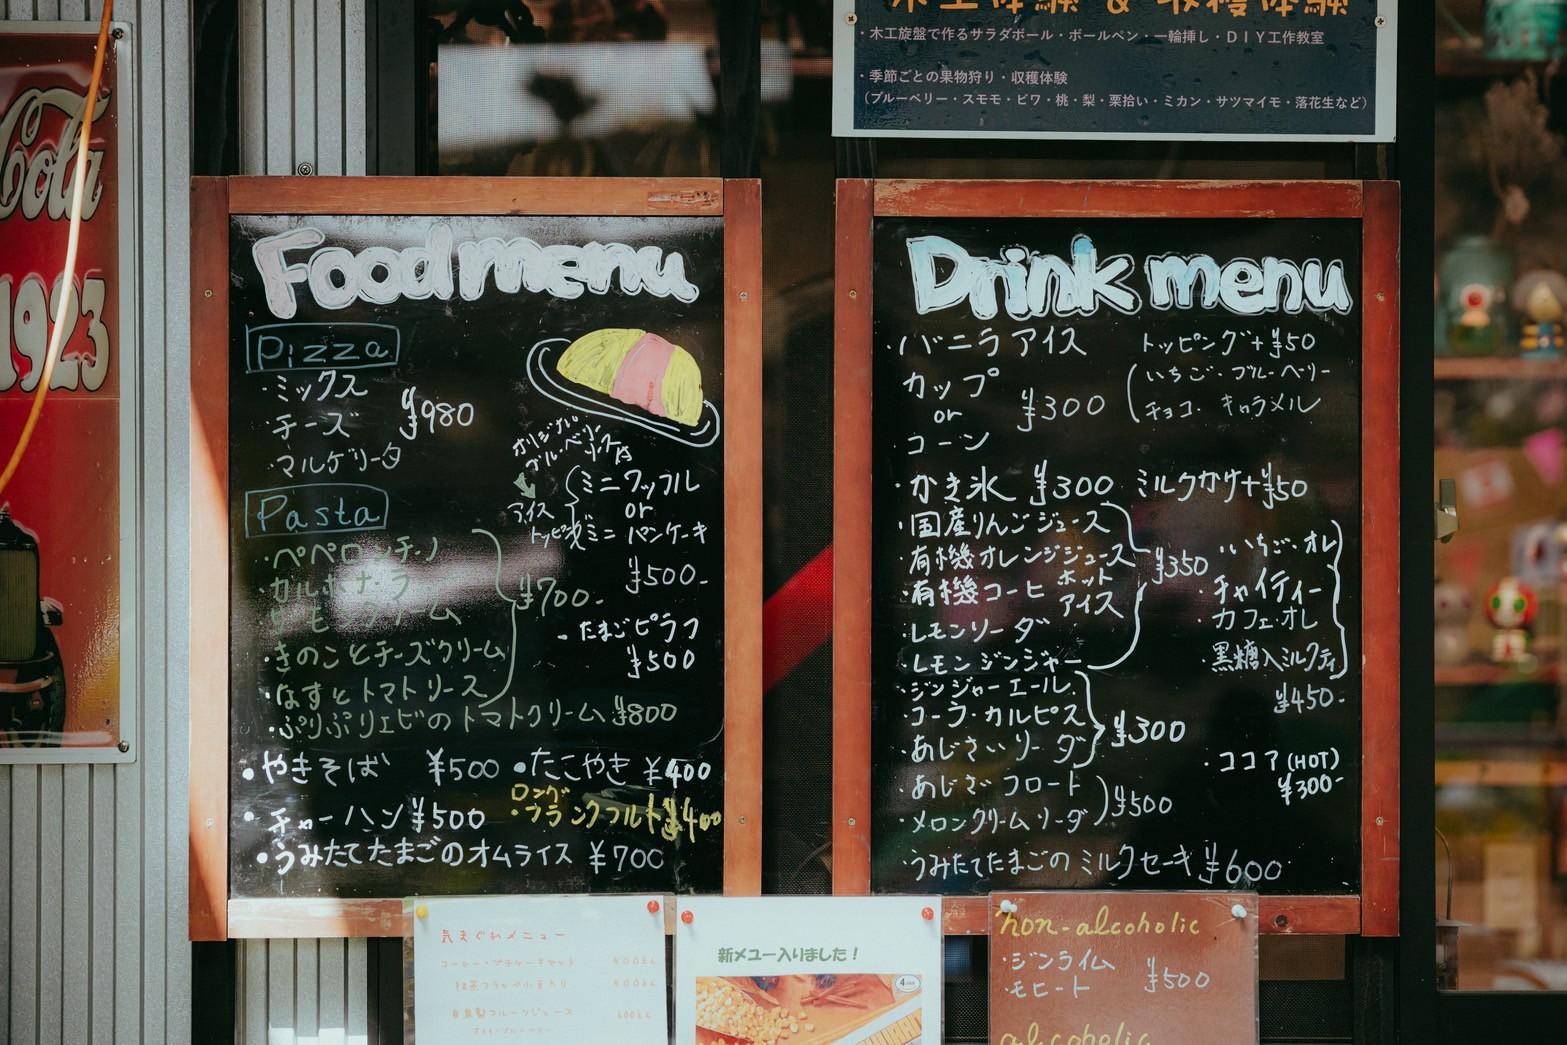 Cola
1923
木工体験 & 収穫体験
・木工旋盤で作るサラダボール・ボールペン・一輪挿し・DIY工作教室
・季節ごとの果物狩り・収穫体験
(ブルーベリー・スモモ・ビワ・桃・梨・栗拾い・ミカン・サツマイモ・落花生など)
Food menu
Pizza
・ミックス
チーズ ¥980
・マルゲリータ
Pasta
・ペペロンチーノ
カルボナーラ
クリーム
・きのことチーズクリーム
・なすとトマトソース
¥700-
・ぷりぷりエビのトマトクリーム ¥800
オリジナル
ブルーベリーソース付
アイス
ミニワッフル
or
ミニ パンケーキ
¥500-
・たまごピラフ
¥500
・やきそば ¥500
・たこやき ¥400
・チャーハン ¥500
ロング
・フランクフルト ¥400
・うみたてたまごのオムライス ¥700
Drink menu
・バニラアイス
カップ
or
コーン
¥300
トッピング+¥50
(いちご・ブルーベリー
チョコ・キャラメル
・かき氷 ¥300 ミルクかけ+¥50
・国産りんごジュース
・有機オレンジジュース
・有機コーヒー ホット
アイス
・レモンソーダ
・レモンジンジャー
¥350
・いちごオレ
・チャイティー
・カフェオレ
・黒糖入ミルクティ
¥450-
・ジンジャーエール
・コーラ・カルピス
・あじさいソーダ
¥300
・ココア(HOT)
¥300-
・あじさいフロート
・メロンクリームソーダ
¥500
・うみたてたまごのミルクセーキ ¥600
気まぐれメニュー
新メニュー入りました!
non-alcoholic
・ジンライム
・モヒート
¥500
alcoholic